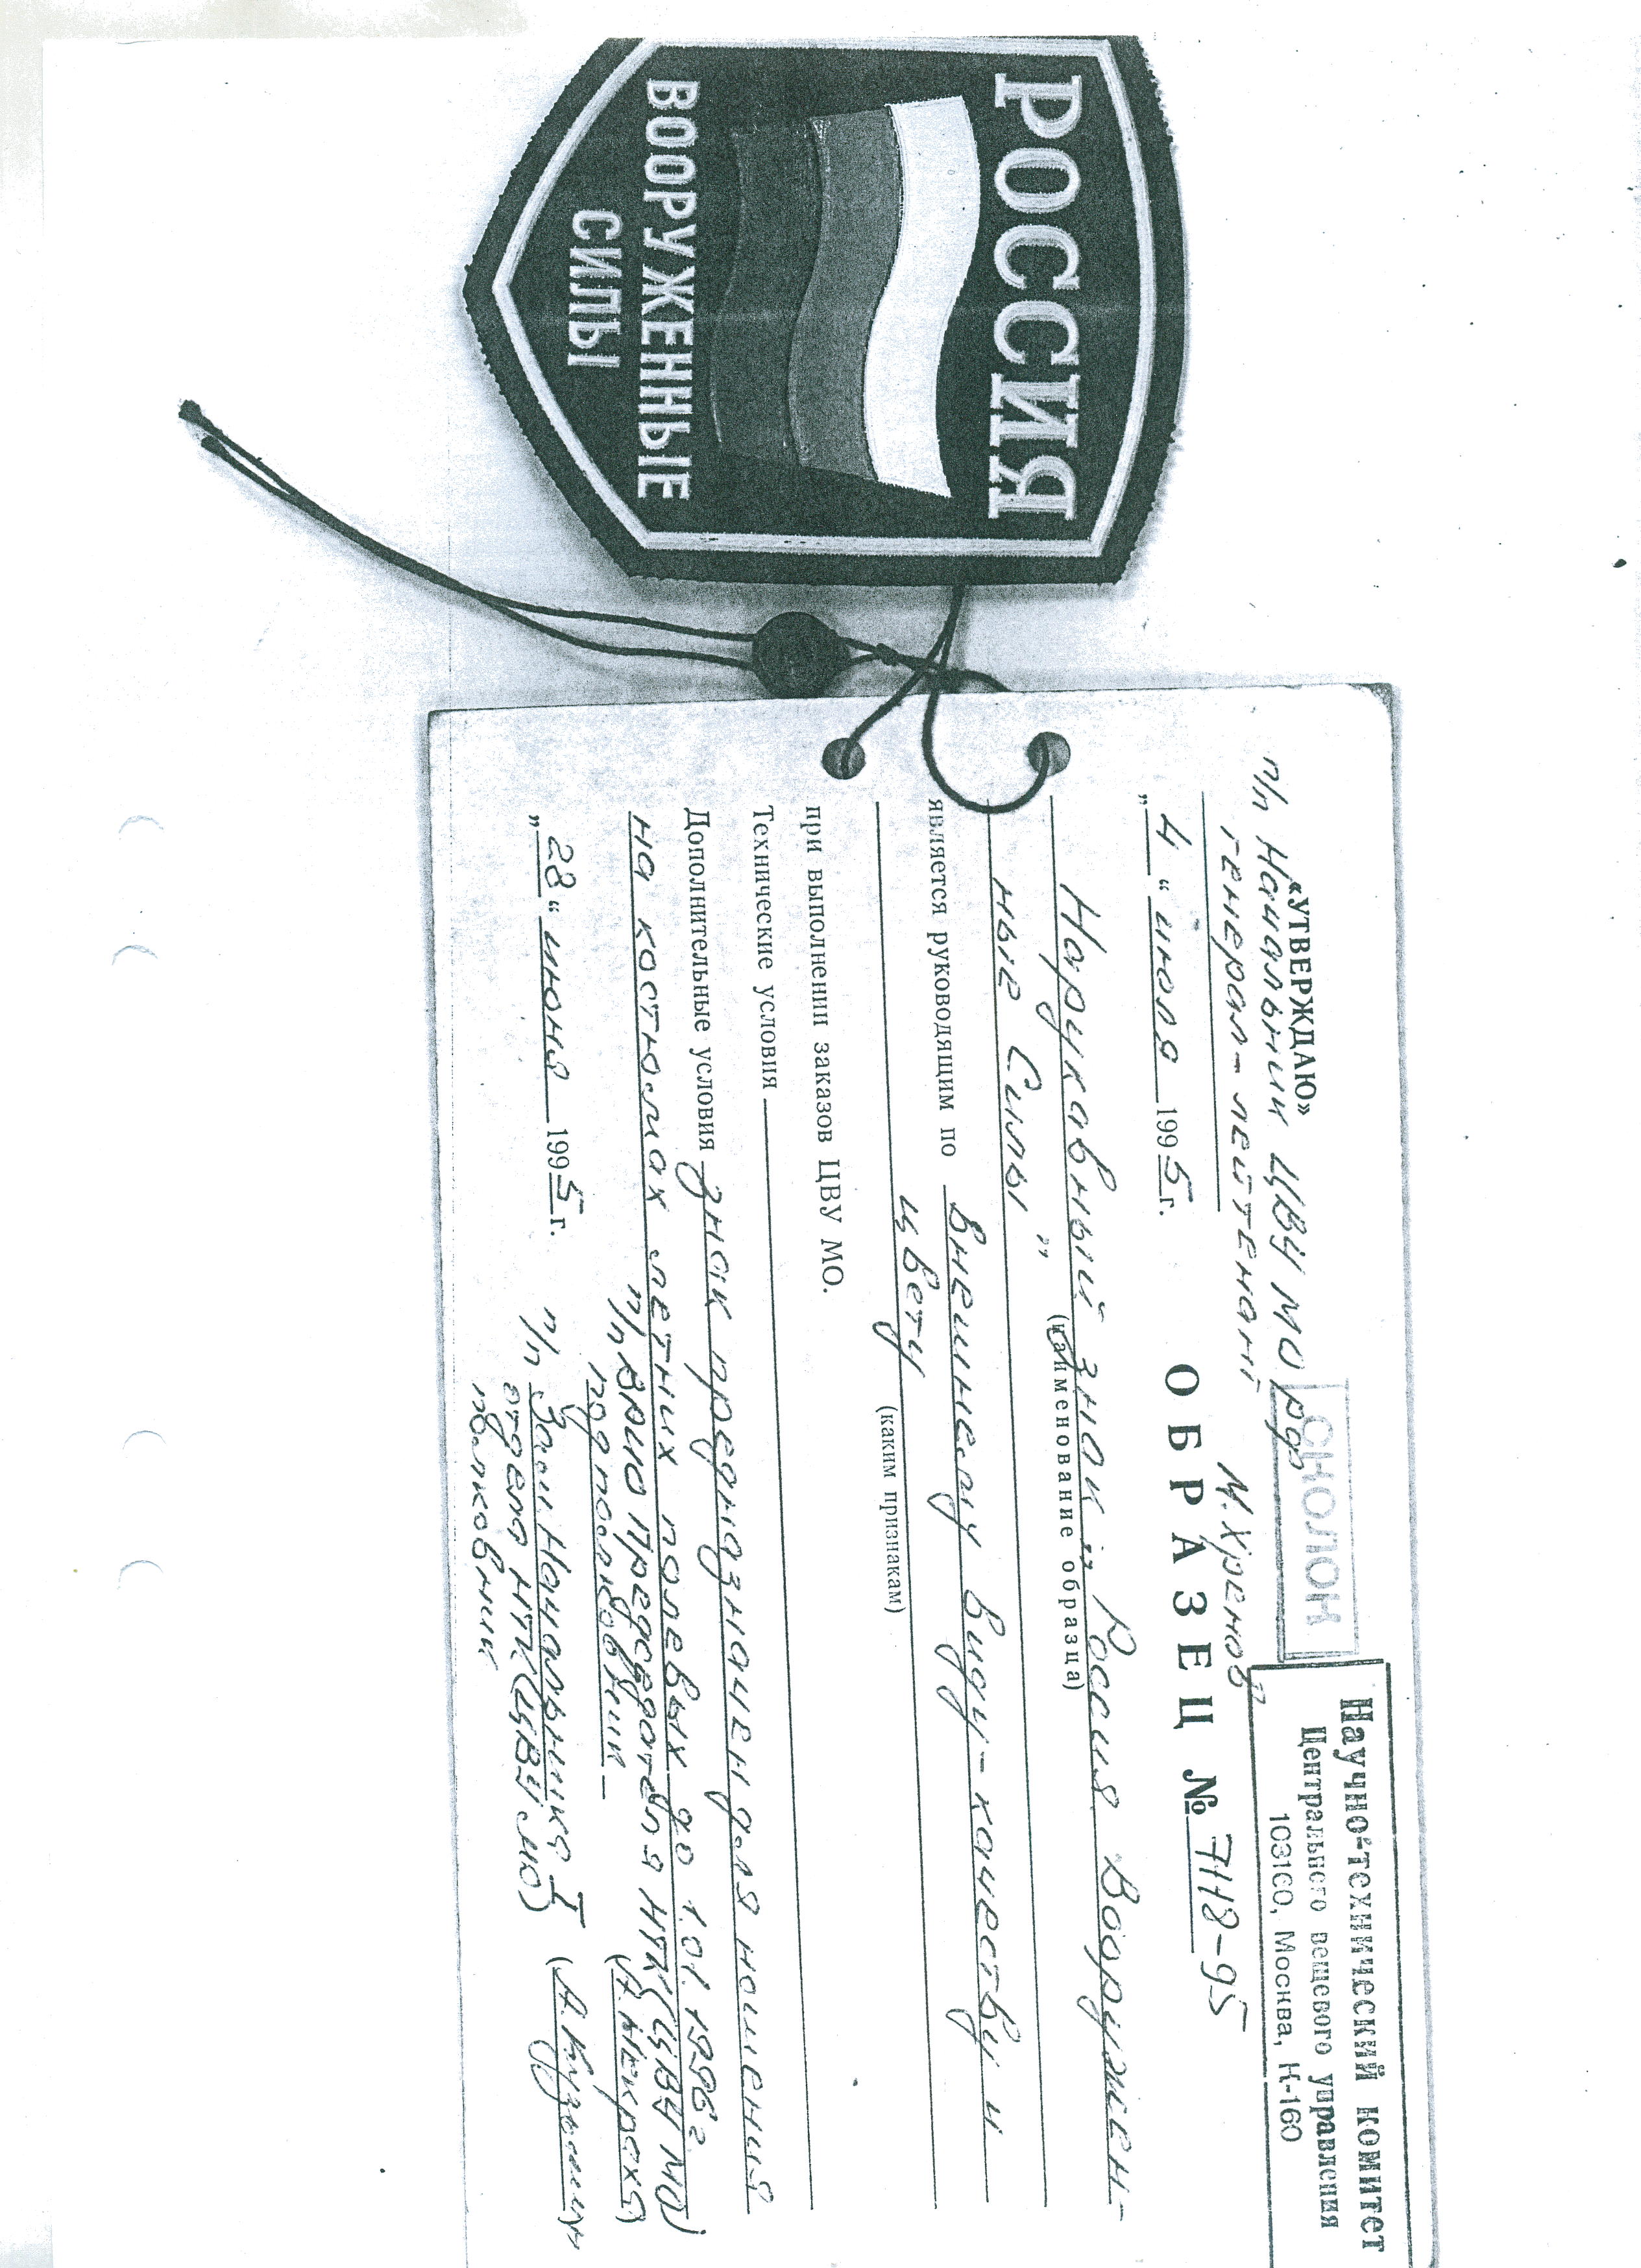 РОССИЯ
ВООРУЖЕННЫЕ
СИЛЫ
Научно-технический комитет
Центрального вещевого управления
103160, Москва, К-160
СКОЛОК
«УТВЕРЖДАЮ»
п/п Начальник ЦВУ МО РФ
генерал-лейтенант М. Хренов
„ 4 “ июля 1995 г.
ОБРАЗЕЦ № 7118-95
Нарукавный знак „Россия. Вооружен-
(наименование образца)
ные Силы”
является руководящим по внешнему виду - качеству и
цвету
(каким признакам)
при выполнении заказов ЦВУ МО.
Технические условия
Дополнительные условия знак предназначен для ношения
на костюмах летних полевых до 1.01.1996 г.
п/п Врио Председателя НТК (ЦВУ МО)
подполковник (А. Некреха)
„ 28 “ июня 1995 г.
п/п Зам Начальника I
отдела НТК (ЦВУ МО) (А. Кузьмин
полковник